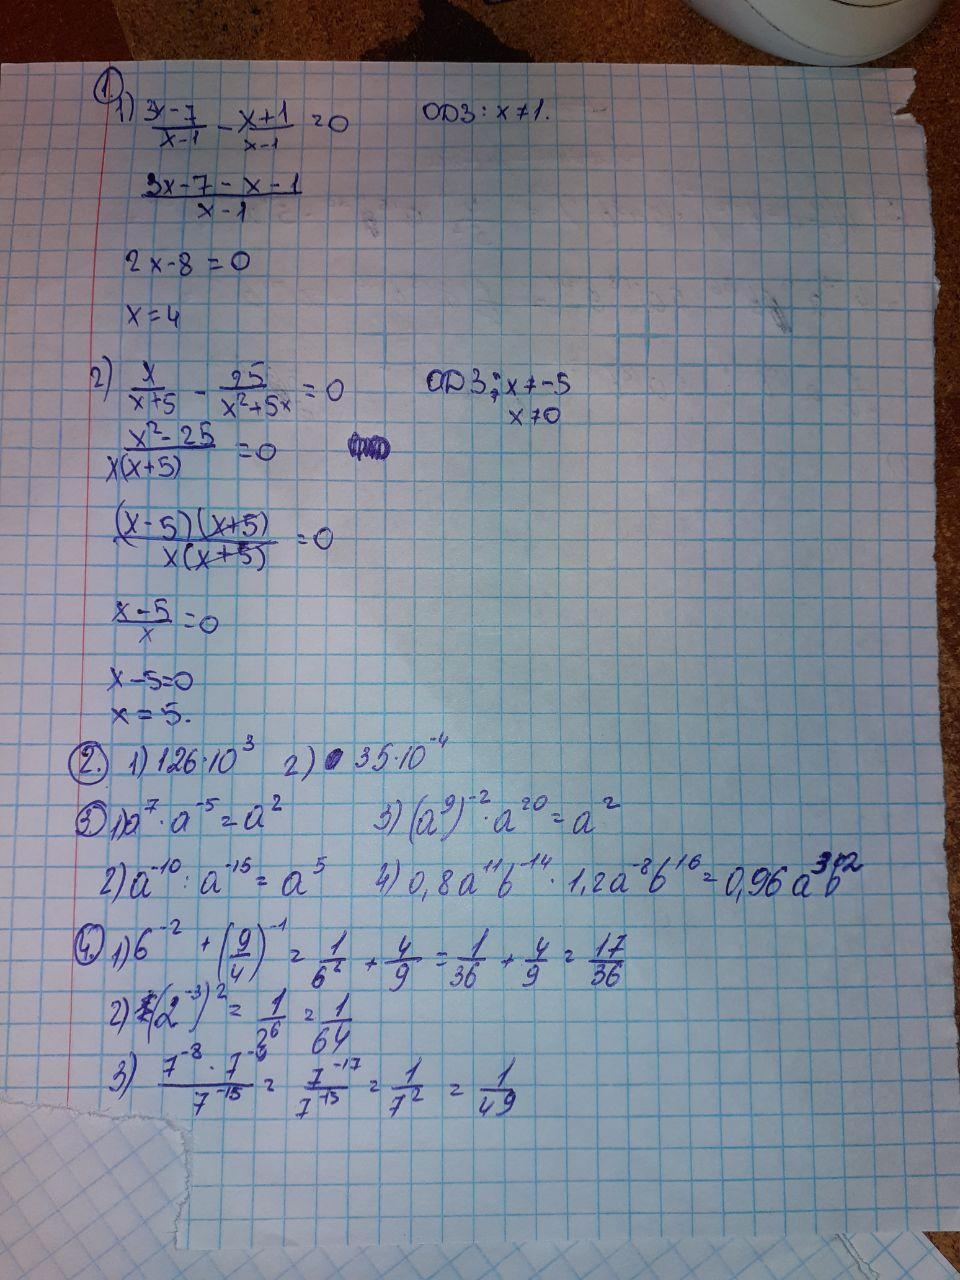 1.
1) (3x-7)/(x-1) - (x+1)/(x-1) = 0 ОДЗ: x≠1.
(3x-7-x-1)/(x-1)
2x-8=0
x=4
2) x/(x+5) - 25/(x²+5x) = 0 ОДЗ: x≠-5
x≠0
(x²-25)/(x(x+5)) = 0
((x-5)(x+5))/(x(x+5)) = 0
(x-5)/x = 0
x-5=0
x=5.
2. 1) 126·10³ 2) 35·10⁻⁴
3. 1) a⁷·a⁻⁵=a² 3) (a⁹)⁻²·a²⁰=a²
2) a⁻¹⁰:a⁻¹⁵=a⁵ 4) 0,8a¹¹b⁻¹⁴·1,2a⁻⁸b¹⁶=0,96a³b²
4. 1) 6⁻²+(9/4)⁻¹=1/6²+4/9=1/36+4/9=17/36
2) (2⁻³)²=1/2⁶=1/64
3) (7⁻⁸·7⁻⁹)/7⁻¹⁵=7⁻¹⁷/7⁻¹⁵=1/7²=1/49